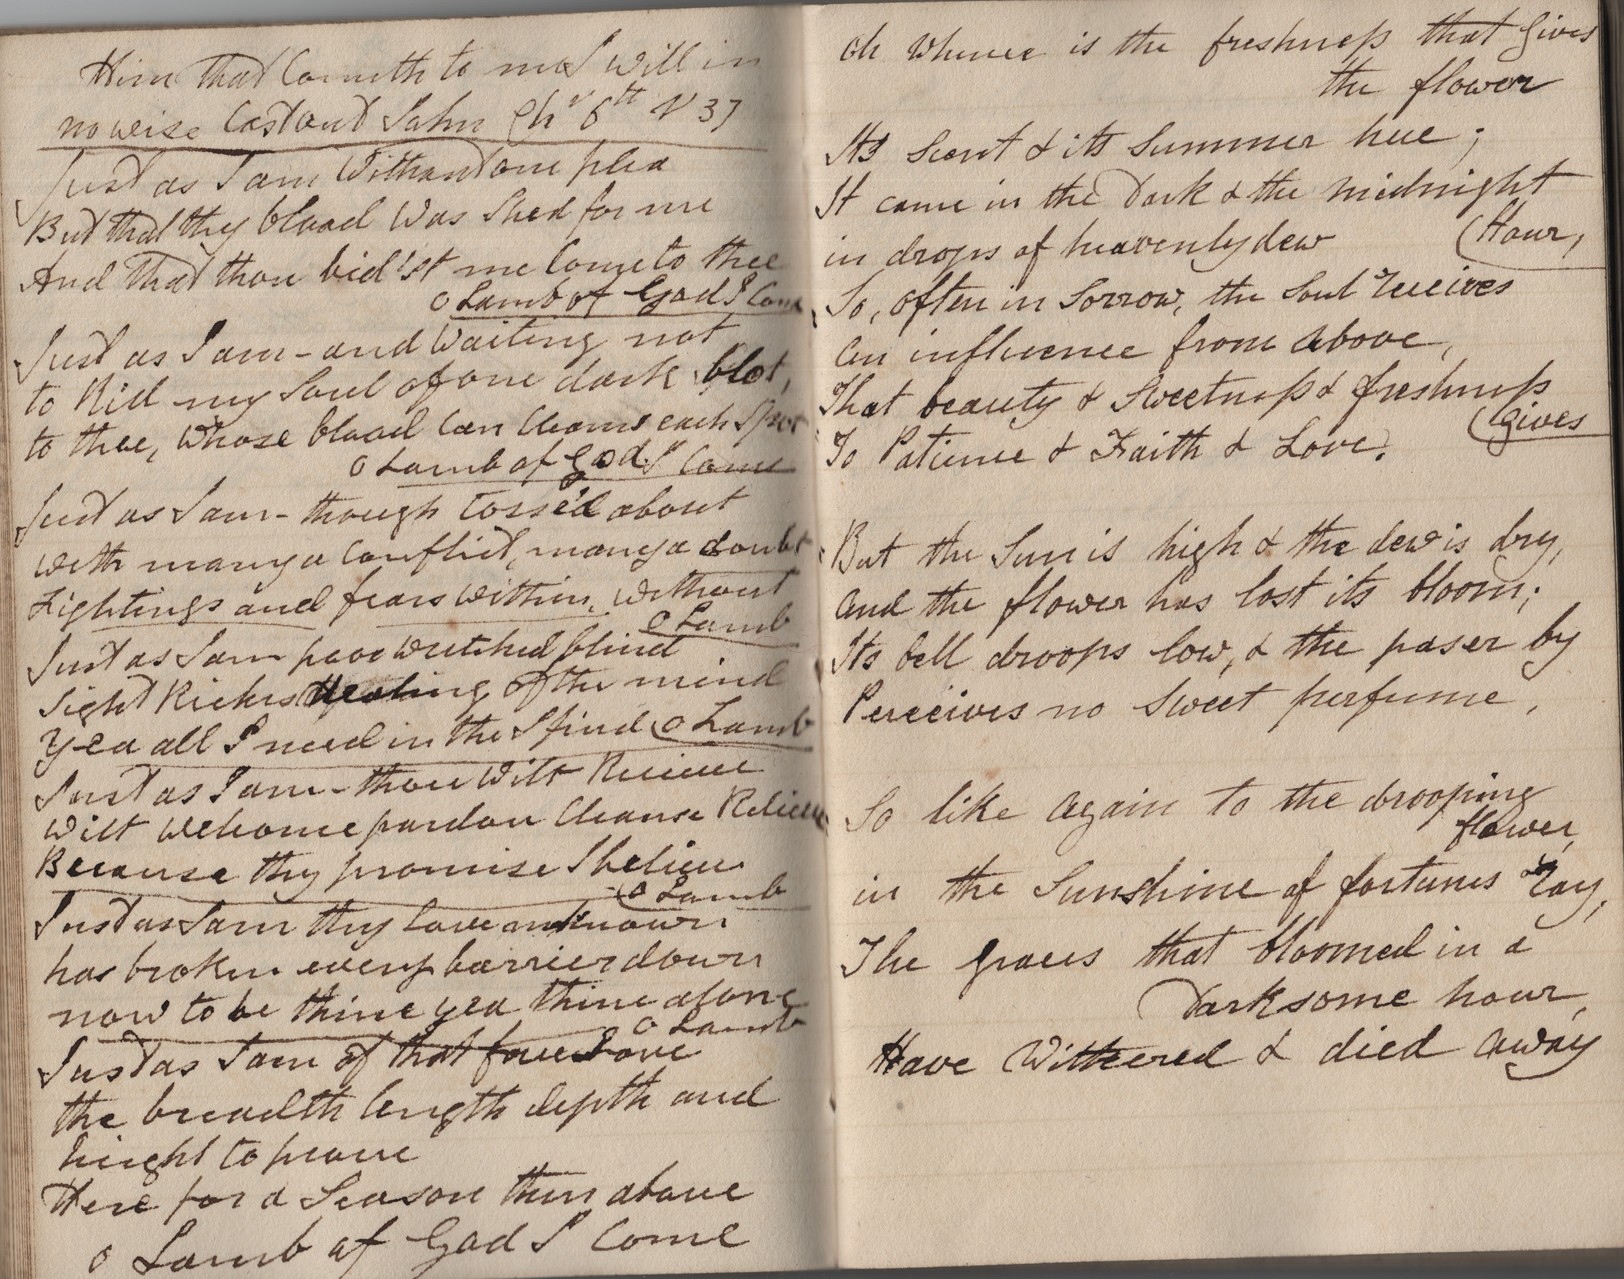 Him that Cometh to me I will in
no wise Cast out John Chr 6th V 37
Just as I am Without one plea
But that thy blood Was Shed for me
And that thou bid'st me Come to thee
o Lamb of God I Come
Just as I am - and Waiting not
to Rid my Soul of one dark blot,
to thee, Whose blood Can Cleans each Spot
o Lamb of God I Come
Just as I am - though Toss'd about
with many a Conflict, many a doubt
Fightings and fears within, without
o Lamb
Just as I am poor wretched blind
Sight Riches Healing of the mind
Yea all I need in the I find (o Lamb
Just as I am - thou Wilt Recieve
Wilt Welcome pardon Cleanse Relieve
Because thy promise I believe
(o Lamb
Just as I am thy Love unknown
has broken every barrier down
now to be thine yea thine alone
o Lamb
Just as I am of that free Love
the breadth length depth and
height to prove
Here for a Season then above
o Lamb of God I Come
oh Whence is the freshness that gives
the flower
Its Scent & its Summer hue;
It came in the Dark & the midnight
(Hour,
in drops of heavenly dew
So, often in Sorrow, the Soul receives
an influence from above,
That beauty & Sweetness & freshness
(gives
To Patience & Faith & Love.
But the Sun is high & the dew is dry,
and the flower has lost its bloom;
Its bell droops low, & the paser by
Perceives no Sweet perfume,
So like again to the drooping
flower,
in the Sunshine of fortunes ray,
The graces that bloomed in a
Darksome hour,
Have Withered & died away